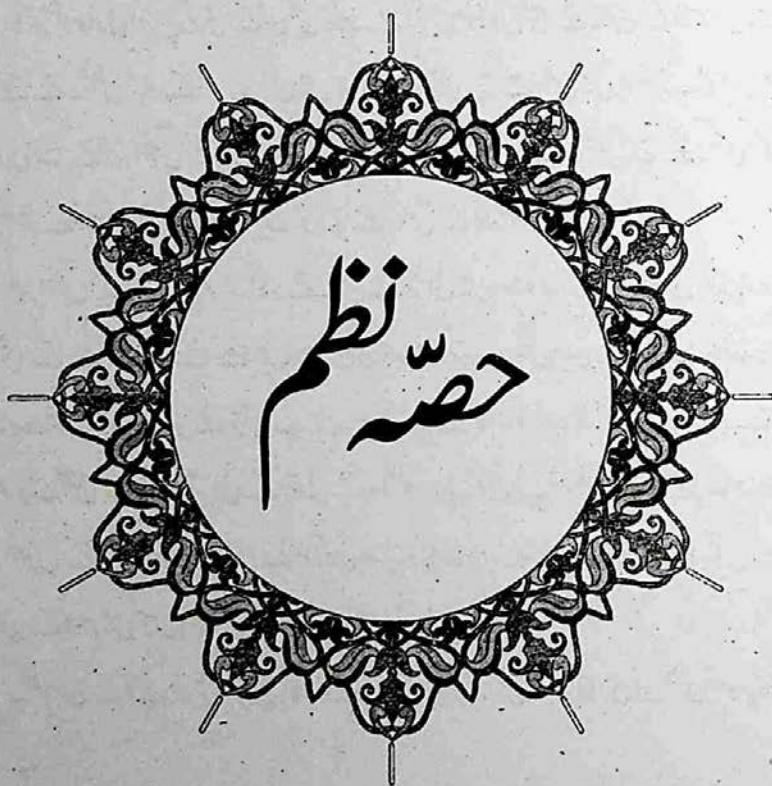 حصّہ نظم